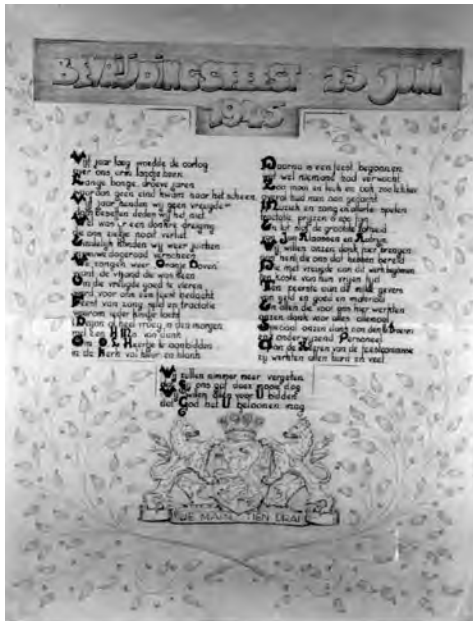 BEVRIJDINGSFEEST 23 JUNI
1945
Vijf jaar lang woedde de oorlog
over ons arm landje heen
Lange bange, droeve jaren
waaraan geen eind kwam naar het scheen
Vijf jaar kenden wij geen vreugde
beseften deden wij het niet
was er een donkre dreiging
die ons zieltje nooit verliet
Eindelijk konden wij weer juichen
nieuwe dageraad verscheen
We zongen weer Oranje Boven
want de vijand die was heen
Om die vreugde goed te vieren
werd voor ons een feest bedacht
Feest van zang spel en tractatie
waarom ieder kindje lacht
Begon al heel vroeg in den morgen
met een H Mis van dank
Ons O L Heertje te aanbidden
in de kerk vol kleur en klank
Daarna is een feest begonnen
zoo wel niemand had verwacht
Zoo mooi en leuk en ook zoo lekker
overal had men aan gedacht
Muziek en zang en allerlei spelen
tractatie, prijzen o zoo fijn
En tot slot de grootste
Jan Klaassen en Katrijn
Wij willen onzen dank hier brengen
aan hen die ons dat hebben bereid
Die met vreugde aan dit werk begonnen
ten koste van hun vrijen tijd
Ten eerste aan de milde gevers
van geld en goed en materiaal
En allen die voor ons hier werkten
onzen dank voor alles allemaal
Speciaal onzen dank aan den
en onderwijzend Personeel
Aan de Heeren van de feestcommissie
zij werkten allen hard en veel
Wij zullen nimmer meer vergeten
die U ons gaf deez mooie dag
Wij zullen allen voor U bidden
dat God het U beloonen mag
JE MAINTIENDRAI